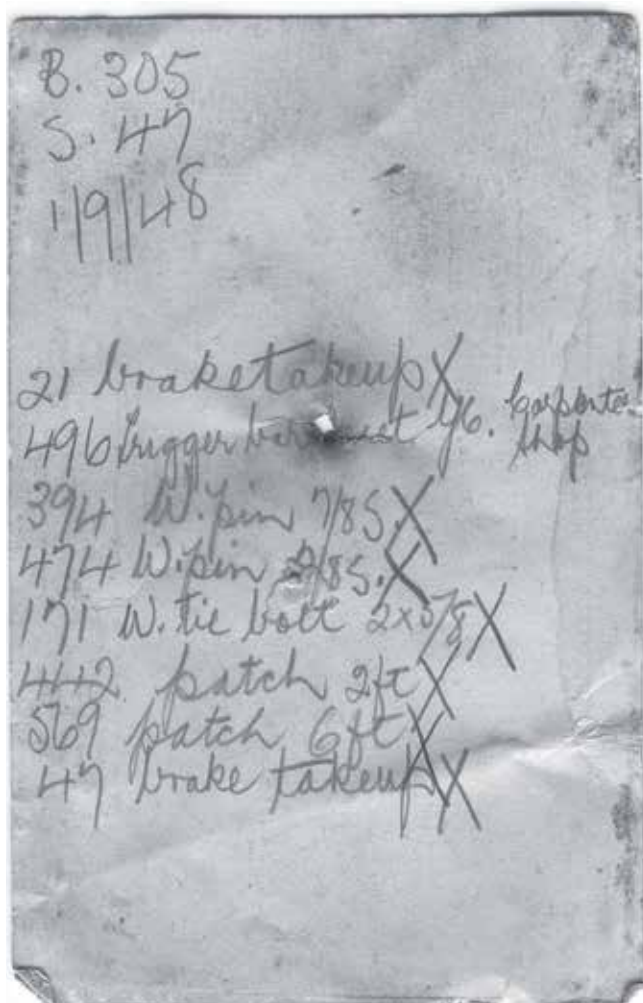 B. 305
S. 47
1/9/48
21 brake takeup X
496 trigger bar Carpenter
shop
394 W. pin 7/8 S. X
474 W. pin /8 S. X
171 W. tie bolt 2x5/8 X
442 patch 2ft X
569 patch 6ft X
47 brake takeup X